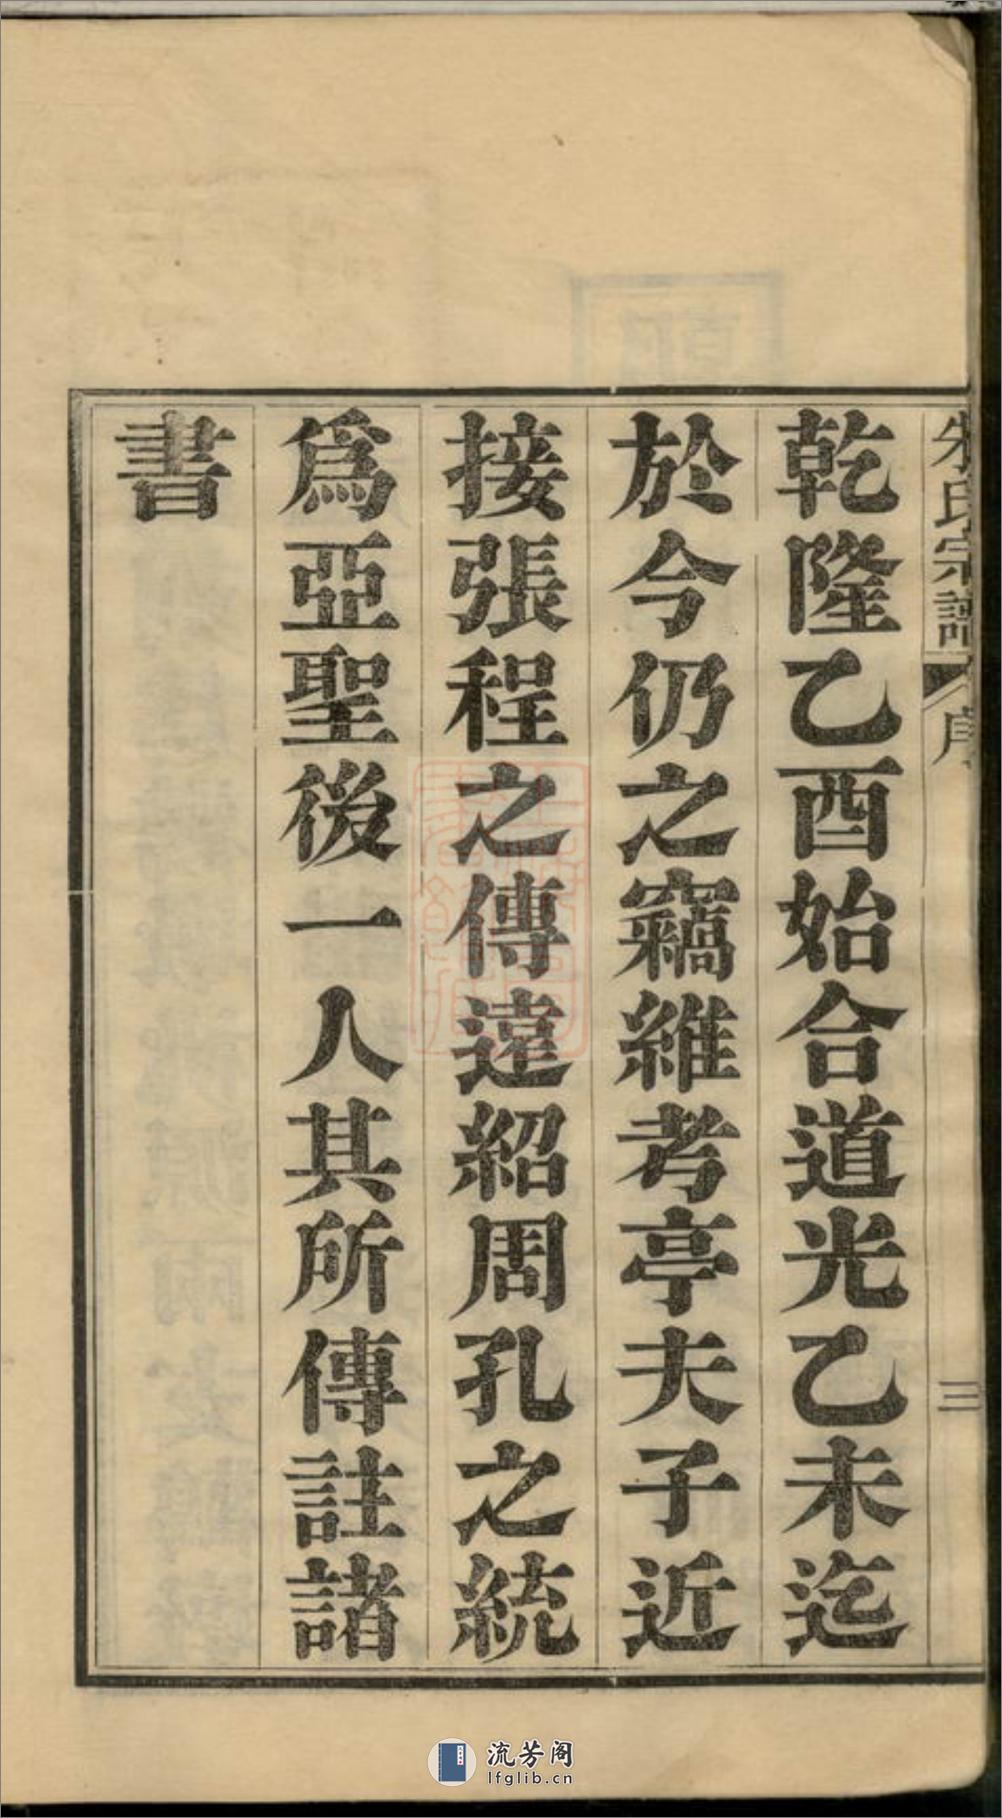 朱氏宗譜 序 三
乾隆乙酉始合道光乙未迄
於今仍之竊維考亭夫子近
接張程之傳遠紹周孔之統
爲亞聖後一人其所傳註諸
書
流芳阁
lfglib.cn